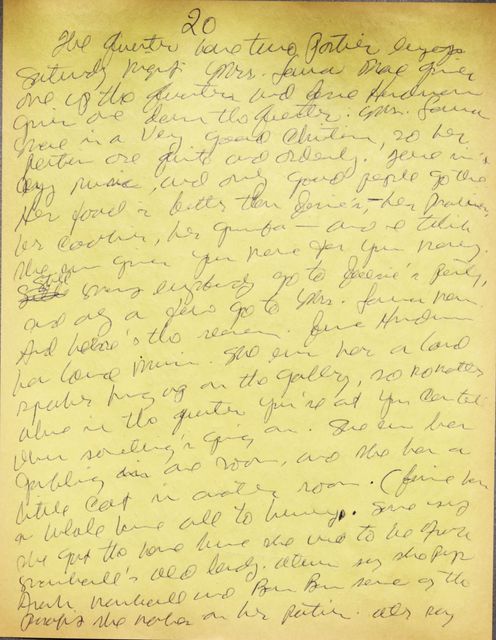 20
The Quarter have two parties every
Saturday night. Mrs. Laura Mae gives
one up the quarters and Josie Henderson
gives one down the quarter. Mrs. Laura
Mae is a very good Christian, so her
parties are quite and orderly. There isn't
any music, and only good people go there.
Her food is better than Josie's, her pralines
her cookies, her gumbo — and I think
she even gives you more for your money.
Still every body go to Josie's party,
and only a few go to Mrs. Laura Mae.
And here's the reason. Josie Henderson
has loud music. She even has a loud
speaker hanging on the gallery, so no matter
where in the quarter you're at you can tell
when something's going on. She even has
gambling in one room, and she has a
little cot in another room. (Josie has
a whole house all to herself. Some say
she got the house 'cause she used to be Frank
's old lady. Others say she pays
Frank and Bon Bon some of the
profit she makes on her parties. All say